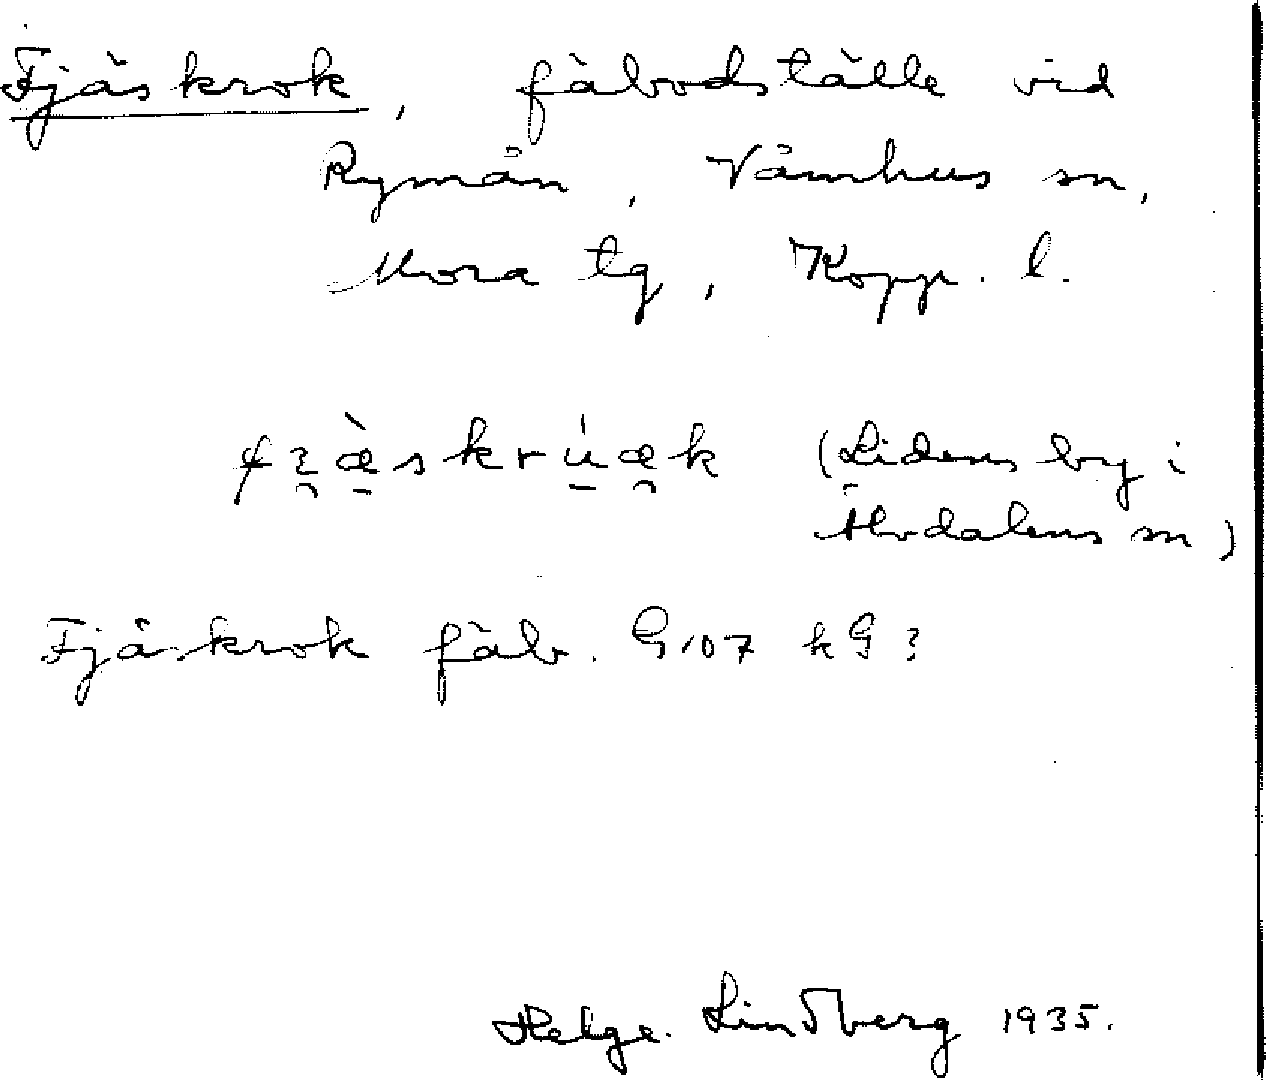 Fjäskrok, fäbodställe vid
Rymån, Våmhus sn,
Mora tg, Kopp. l.
(Lidens by i
Älvdalens sn)
Fjäskrok fäb. G 107 k G 3
Helge Lindberg 1935.